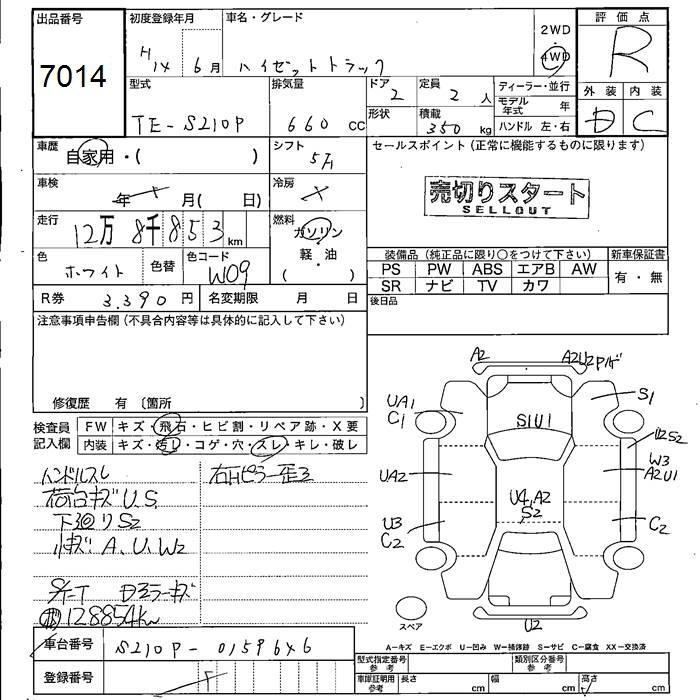 出品番号
7014
初度登録年月
H14 6月
車名・グレード
ハイゼットトラック
2WD
・
4WD
評価点
R
外装 内装
D C
型式
TE-S210P
排気量
660 cc
ドア
2
形状
定員
2 人
積載
350 kg
ディーラー・並行
モデル年式 年
ハンドル 左・右
車歴
自家用・( )
シフト
5F
セールスポイント(正常に機能するものに限ります)
売切りスタート
SELLOUT
車検
年 月( 日)
冷房
走行
12万 8千 853 km
燃料
ガソリン
軽・油
( )
色
ホワイト
色替
色コード
W09
装備品(純正品に限り○をつけて下さい)
新車保証書
PS PW ABS エアB AW
SR ナビ TV カワ
有・無
R券 3.390 円
名変期限 月 日
後日品
注意事項申告欄(不具合内容等は具体的に記入して下さい)
修復歴 有 〔箇所 〕
検査員
記入欄
FW キズ・飛石・ヒビ割・リペア跡・X要
内装 キズ・汚し・コゲ・穴・スレ・キレ・破レ
ハンドルスレ
荷台キズU.S
下廻りS2
小キズ A,U,W2
S/T Dミラーキズ
128854km
右Hピラー歪ミ
A2
A2U2
UA1
C1
S1U1
S1
U2S2
W3
A2U1
UA2
U4,A2
S2
U3
C2
C2
スペア
U2
A-キズ E-エクボ U-凹み W-補修跡 S-サビ C-腐食 XX-交換済
車台番号
S210P-0159646
登録番号
型式指定番号
参考
類別区分番号
参考
車庫証明用
参考
長さ cm
幅 cm
高さ cm